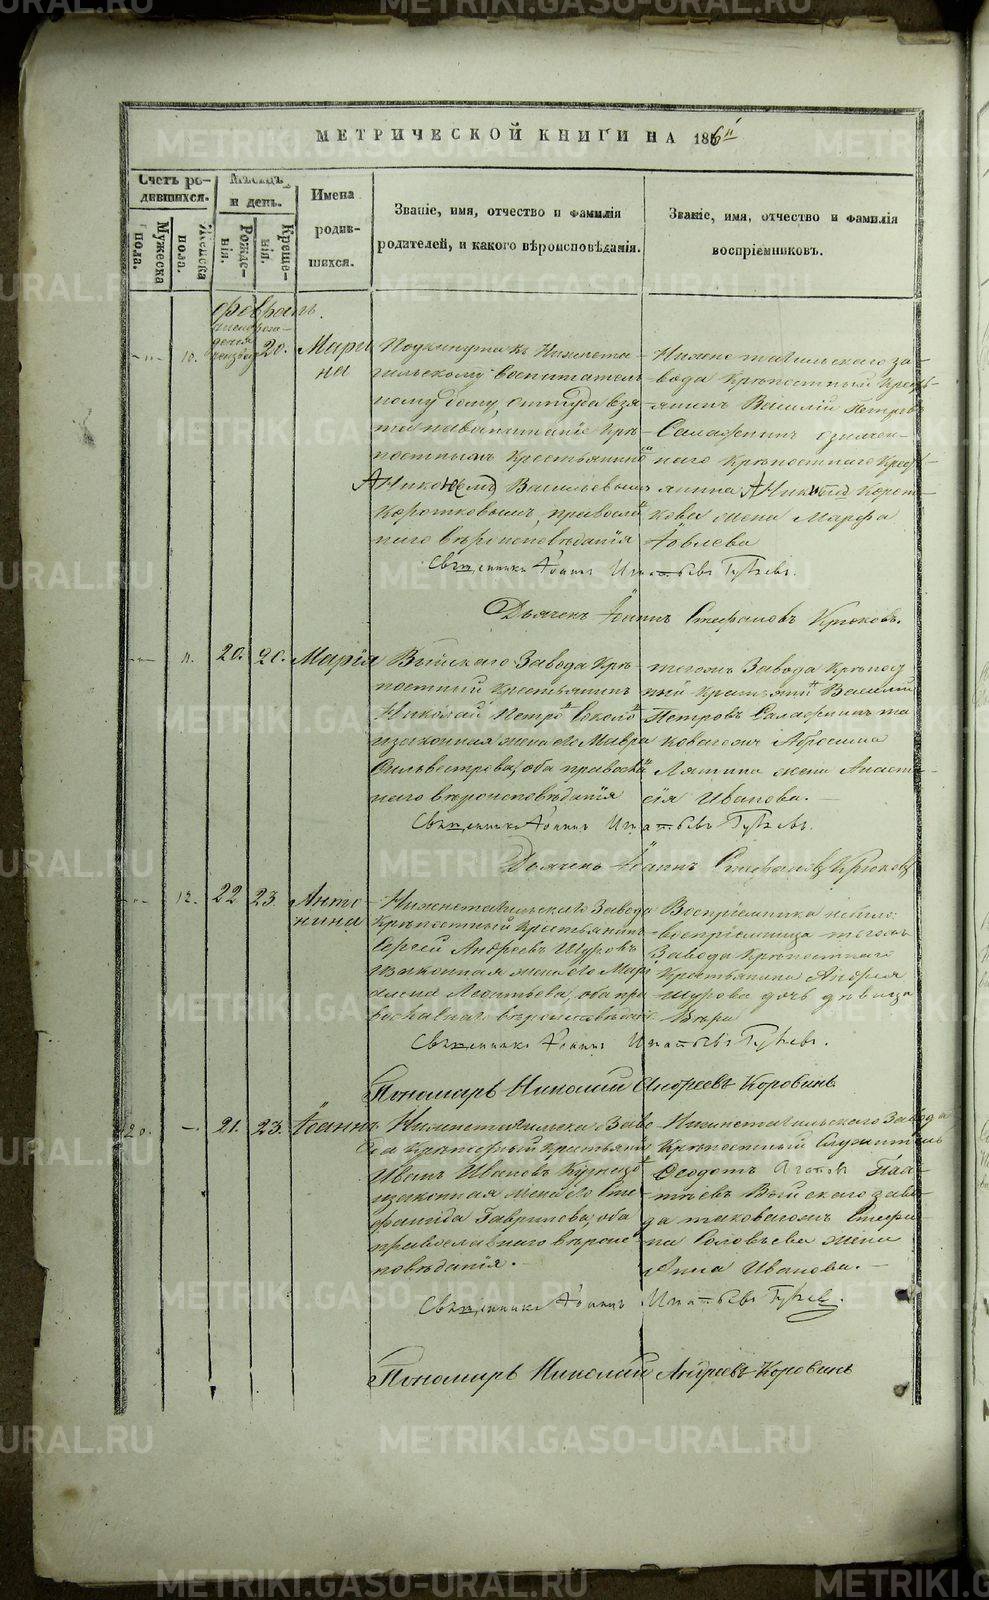 МЕТРИЧЕСКОЙ КНИГИ НА 186
Счетъ ро-
дившихся.
Мужеска
пола.
Женска
пола.
Мѣсяцъ
и день.
Рожде-
нія.
Креще-
нія.
Имена
родив-
шихся.
Званіе, имя, отчество и фамилія
родителей, и какого вѣроисповѣданія.
Званіе, имя, отчество и фамилія
воспріемниковъ.
февраль.
10. 20. Мари
на
Подкинута къ Нижнета-
гильскому воспитатель-
ному дому, оттуда взя-
та на воспитаніе Крѣ-
постнымъ Крестьянино
Васильевымъ
Коротковымъ, правосла
наго вѣроисповѣданія
Нижнетагильскаго за-
вода Крѣпостный Кресть-
янинъ Василій Петровъ
Салафнинъ означен-
наго Крѣпостнаго Кресть-
янина Корот-
кова жена Марфа
Іовлева
Священникъ Іоаннъ Игнатьевъ
Дьячекъ Іоаннъ Стефановъ Крюковъ.
11. 20. 20. Марія
Выйскаго Завода Крѣ-
постный Крестьянинъ
Николай Петро
и законная жена его Мавра
Сильвестрова, оба правосла
наго вѣроисповѣданія
тогожъ Завода Крѣпост
ный Крестьянинъ Василій
Петровъ Салафнинъ та
коваго жъ Абросима
Ляпина жена Анаста-
сія Иванова.
Священникъ Іоаннъ Игнатьевъ
Дьячекъ Іоаннъ Стефановъ Крюковъ
12. 22 23. Анто
нина
Нижнетагильскаго Завода
Крѣпостный Крестьянинъ
Сергей Андреевъ Шуровъ
и законная жена его Мари
Леонтьева, оба пра
вославнаго вѣроисповѣданія
Воспріемника небыло:
воспріемница тогожъ
Завода Крѣпостнаго
Крестьянина Андрея
Шурова дочь дѣвица
Вѣра
Священникъ Іоаннъ Игнатьевъ
Пономарь Николай Андреевъ Коровинъ
20. 21. 23. Іоаннъ
Нижнетагильска Заво
да Крѣпостный Крестьянин
Иванъ Ивановъ Кузнецо
и законная жена его Сте
фанида Гаврилова, оба
православнаго вѣроис
повѣданія.
Нижнетагильскаго Завода
Крѣпостный Служитель
Феодотъ
Выйскаго заво-
да таковагожъ Стефа
на Соловьева жена
Анна Иванова.
Священникъ Іоаннъ Игнатьевъ
Пономарь Николай Андреевъ Коровинъ
METRIKI.GASO-URAL.RU